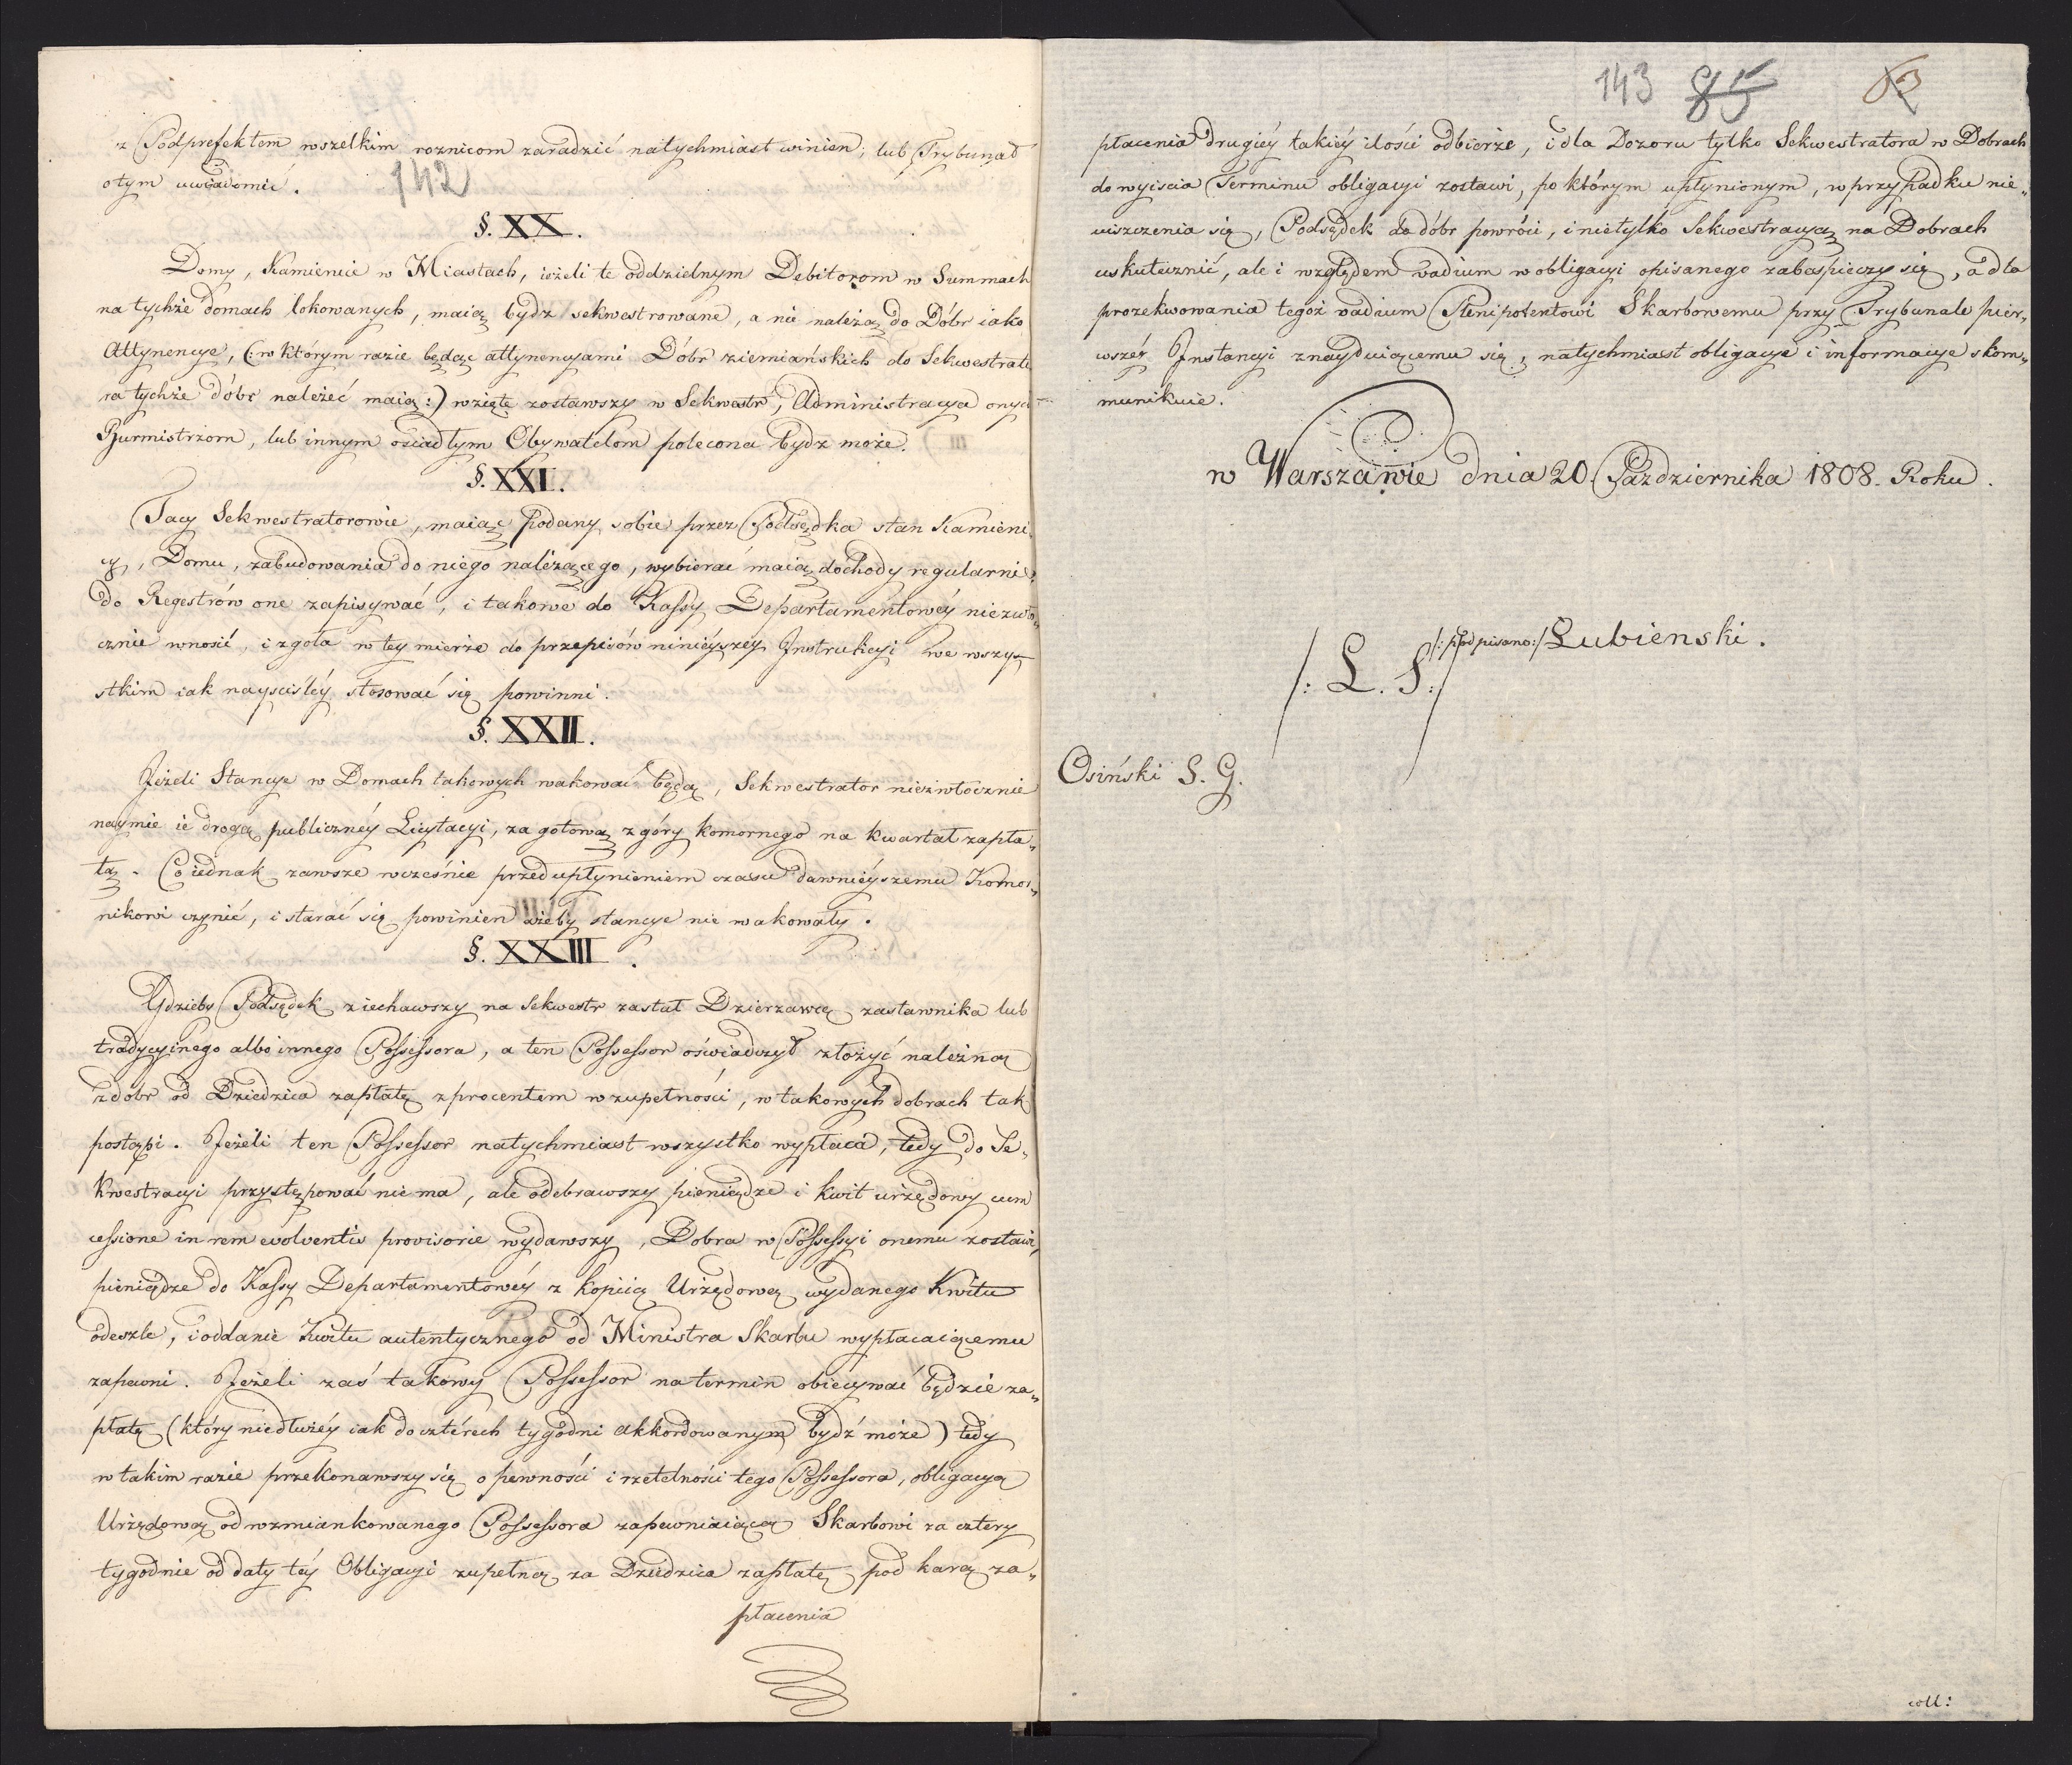 z Podprefektem wszelkim roznicom zaradzić natychmiast winien, lub Trybunał
o tym uwiadomić.
142
§. XX.
Domy, Kamienice w Miastach, ieżeli te oddzielnym Debitorom w Summach
na tychże domach lokowanych, maią bydz sekwestrowane, a nie należą do Dóbr iako
Attynencye, (: w którym razie będąc attynencyami Dóbr ziemiańskich do Sekwestrato
ra tychże dóbr należeć maią :) wzięte zostawszy w Sekwestr, Administracya onych
Burmistrzom, lub innym osiadłym Obywatelom polecona bydz może.
§. XXI.
Tacy Sekwestratorowie, maiąc podany sobie przez Podsędka stan Kamieni„
cy, Domu, zabudowania do niego należącego, wybierać maią dochody regularnie
do Regestrów one zapisywać, i takowe do Kassy Departamentowéy niezwło„
cznie wnosić, i zgoła w tey mierze do przepisów ninieyszéy Instrukcyi we wszy„
stkim iak nayściśléy stosować się powinni.
§. XXII.
Jeżeli Stancye w Domach takowych wakować będą, Sekwestrator niezwłocznie
naymie ie drogą publicznéy Licytacyi, za gotową z góry komornego na kwartał zapła„
tą. Co iednak zawsze wcześnie przed upłynieniem czasu dawnieyszemu Komor„
nikowi czynić, i starać się powinien ażeby stancye nie wakowały.
§. XXIII.
Gdzieby Podsędek ziechawszy na Sekwestr zastał Dzierzawcę zastawnika lub
tradycyinego albo innego Possessora, a ten Possessor oświadczył złożyć należną
z dobr od Dziedzica zapłatę z procentem w zupełności, w takowych dobrach tak
postąpi. Jeżeli ten Possessor natychmiast wszystko wypłaca, tedy do Se„
kwestracyi przystępować nie ma, ale odebrawszy pieniądze i kwit urzędowy cum
cessione in rem evolventis provisorie wydawszy, Dobra w Possessyi onemu zostawi,
pieniądze do Kassy Departamentowéy z kopiią Urzędową wydanego Kwitu
odeszle, i oddanie Kwitu autentycznego od Ministra Skarbu wypłacaiącemu
zapewni. Jeżeli zaś takowy Possessor na termin obiecywać będzie za„
płatę (który niedłużéy iak do czterech tygodni akkordowanym bydź może) tedy
w takim razie przekonawszy się o pewności i rzetelności tego Possessora, obligacyą
Urzędową od wzmiankowanego Possessora zapewniaiącą Skarbowi za cztery
tygodnie od daty téy Obligacyi zupełną za Dziedzica zapłatę pod karą za„
płacenia
143 85 63
płacenia drugiéy takiéy ilości odbierze, i dla Dozoru tylko Sekwestratora w Dobrach
do wyiścia Terminu obligacyi zostawi, po którym upłynionym, w przypadku nie„
uiszczenia się, Podsędek do dóbr powróci, i nietylko Sekwestracyą na Dobrach
uskutecznić, ale i względem vadium w obligacyi opisanego zabespieczy się, a dla
prozekwowania tegoż vadium Plenipotentowi Skarbowemu przy Trybunale pier„
wszéy Instancyi znayduiącemu się, natychmiast obligacye i informacye skom„
munikuie.
w Warszawie dnia 20. Października 1808. Roku.
/: podpisano :/ Łubienski.
/: L. S. :/
Osiński S. G.
coll: